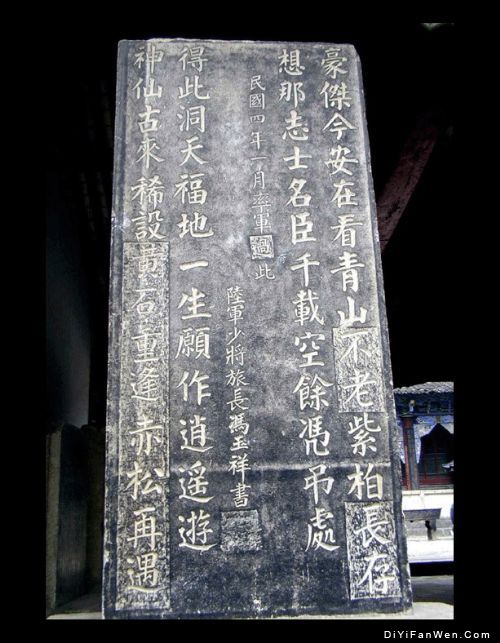 豪傑今安在看青山不老紫柏長存
想那志士名臣千載空餘憑吊處
民國四年一月率軍過此
陸軍少將旅長馮玉祥書
得此洞天福地一生願作逍遥遊
神仙古來稀設黄石重逢赤松再遇
DiYiFanWen.Com